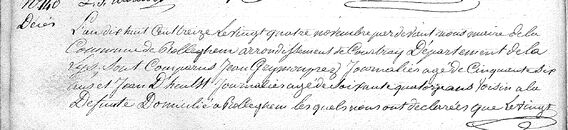 Décès
L'an dix huit cent treize le vingt quatre novembre par devant nous maire de la
Commune de Rolleghem arrondissement de Courtray Département de la
Lys, sont Comparus Jean journalier agé de Cinquante six
ans et Jean D'hulst journalier agé de soixante quatorze ans voisin a la
Defunte Domicilié a Rolleghem les quels nous ont declarées que le vingt